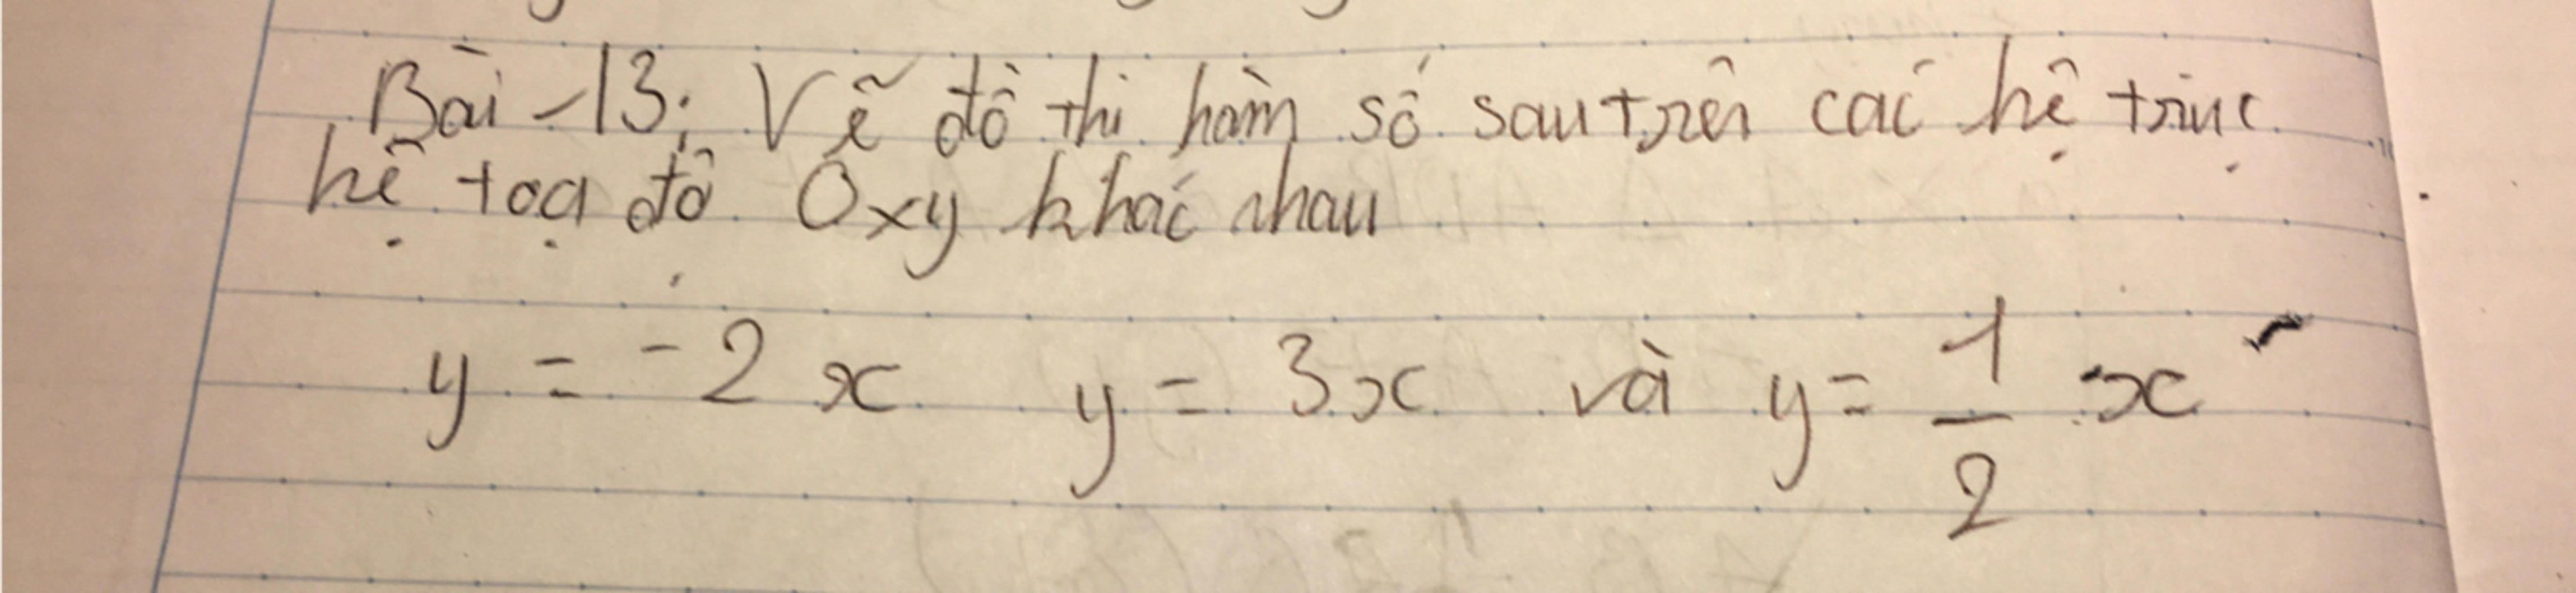 Bài 13: Vẽ đồ thi hàm số sau trên các hệ trục
hệ toạ độ Oxy khác nhau
y = -2x y = 3x và y = 1/2 x